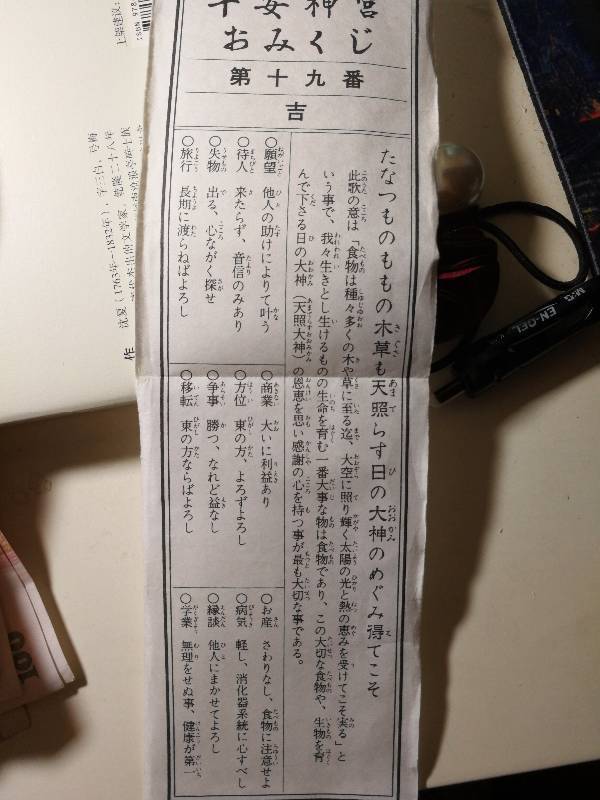 平安神宮
おみくじ
第十九番
吉
たなつものももの木草も天照らす日の大神のめぐみ得てこそ
此歌の意は「食物は種々多くの木や草に至る迄、大空に照り輝く太陽の光と熱の恵みを受けてこそ実る」と
いう事で、我々生きとし生けるものの生命を育む一番大事な物は食物であり、この大切な食物や、生物を育
んで下さる日の大神（天照大神）の恩恵を思い感謝の心を持つ事が最も大切な事である。
○願望 他人の助けによりて叶う
○待人 来たらず、音信のみあり
○失物 出る、心ながく探せ
○旅行 長期に渡らねばよろし
○商業 大いに利益あり
○方位 東の方、よろずよろし
○争事 勝つ、なれど益なし
○移転 東の方ならばよろし
○お産 さわりなし、食物に注意せよ
○病気 軽し、消化器系統に心すべし
○縁談 他人にまかせてよろし
○学業 無理をせぬ事、健康が第一
上架建议：
ISBN 978
沈复（1763年～1832年），字三白，号梅
作
M&G
EN-GEL
100